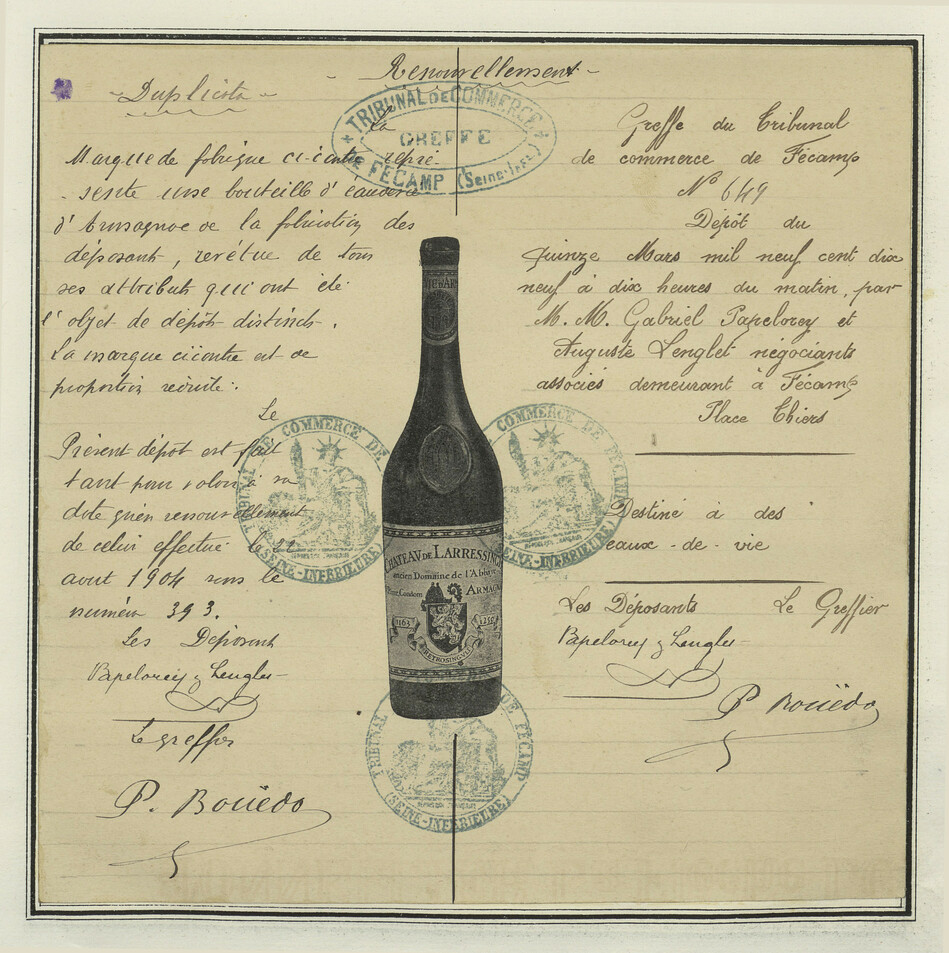 Renouvellement
Duplicata
TRIBUNAL DE COMMERCE
GREFFE
DE FÉCAMP (Seine-Infre)
La
Marque de fabrique ci-contre repré-
sente une bouteille d'eau de vie
d'Armagnac de la fabrication des
déposants, revêtue de tous
ses attributs qui ont été
l'objet de dépôts distincts.
La marque ci contre est de
proportion réduite.
Le
Présent dépôt est fait
tant pour valoir à sa
date qu'en renouvellement
de celui effectué le 22
avout 1904 sous le
numéro 393.
Les Déposant
Papelorey & Lenglet
Le greffier
P. Bouëdo
Greffe du Tribunal
de commerce de Fécamp
N° 649
Dépôt du
Quinze Mars mil neuf cent dix
neuf à dix heures du matin, par
M. M. Gabriel Papelorey et
Auguste Lenglet négociants
associés demeurant à Fécamp
Place Thiers
Destiné à des
eaux-de-vie
Les Déposants Le Greffier
Papelorey & Lenglet
P. Bouëdo
CHATEAU DE LARRESSINGLE
ancien Domaine de l'Abbaye
Condom ARMAGNAC
1163 1250
RETROSINGULA
TRIBUNAL DE COMMERCE DE
(SEINE-INFÉRIEURE)
COMMERCE DE FÉCAMP
(SEINE-INFÉRIEURE)
TRIBUNAL DE FÉCAMP
(SEINE-INFÉRIEURE)